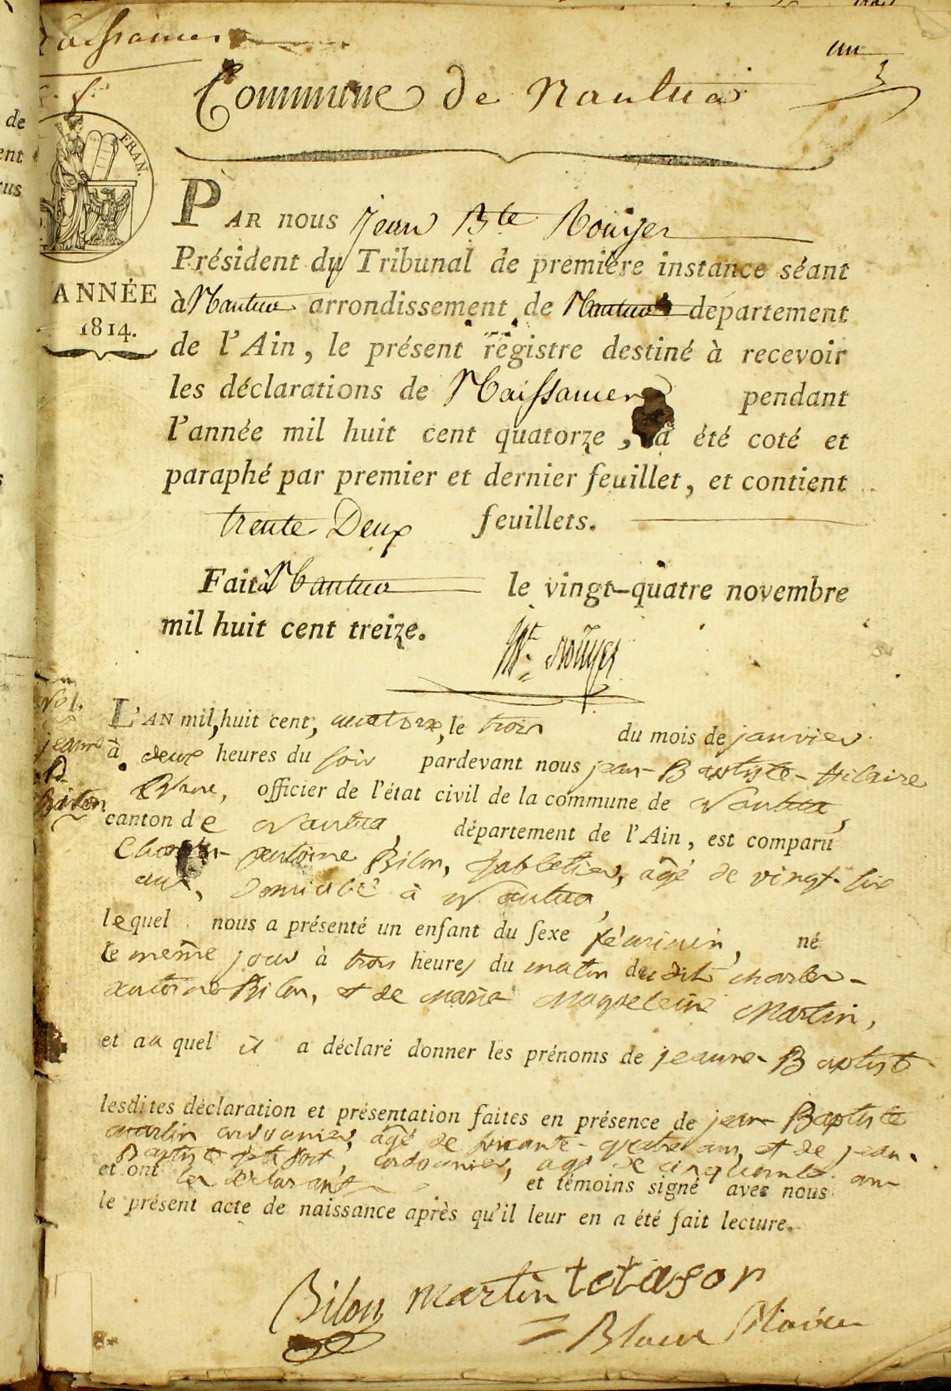 Naissances
un
Commune de Nantua
FRAN
ANNÉE
1814.
PAR nous Jean Bte Rouyer
Président du Tribunal de première instance séant
à Nantua arrondissement de Nantua département
de l'Ain, le présent registre destiné à recevoir
les déclarations de Naissances pendant
l'année mil huit cent quatorze, a été coté et
paraphé par premier et dernier feuillet, et contient
trente Deux feuillets.
Fait à Nantua le vingt-quatre novembre
mil huit cent treize.
Rouyer
No 1.
jeanne
B
Bilon
L'AN mil huit cent, quatorze, le trois du mois de janvier
à deux heures du soir pardevant nous jean-Baptiste-hilaire
officier de l'état civil de la commune de Nantua,
canton de Nantua, département de l'Ain, est comparu
Charles-antoine Bilon, tabletier, âgé de vingt-six
ans, Domicilié à Nantua,
lequel nous a présenté un enfant du sexe féminin, né
le même jour à trois heures du matin dudit charles-
antoine Bilon, et de marie Magdeleine Martin,
et auquel il a déclaré donner les prénoms de jeanne-Baptiste
lesdites déclaration et présentation faites en présence de jean Baptiste
martin cordonnier, âgé de soixante-quatre ans, et de jean-
Baptiste cordonnier, âgé de cinquante ans
et ont les déclarant et témoins signé avec nous
le présent acte de naissance après qu'il leur en a été fait lecture.
Bilon martin tetafort